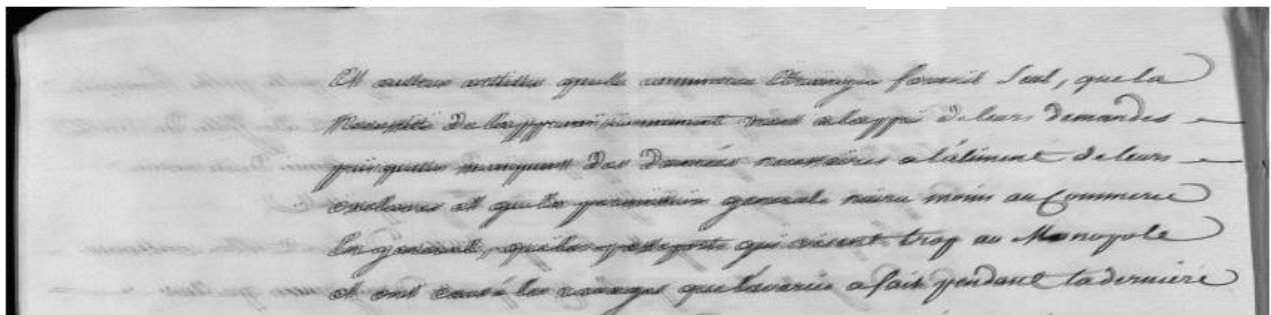 Et autres articles que le commerce Etranger fournit Seul, que la
Necessité de l'approvisionnement vient a lappui de leurs demandes
puisquelles manquent des denrées necessaires a lâliment de leurs
esclaves et que les permission generale nuira moins au Commerce
En general, que les passeports qui visent trop au Monopole
et ont causé les ravages que lavarice a fait pendant la derniere